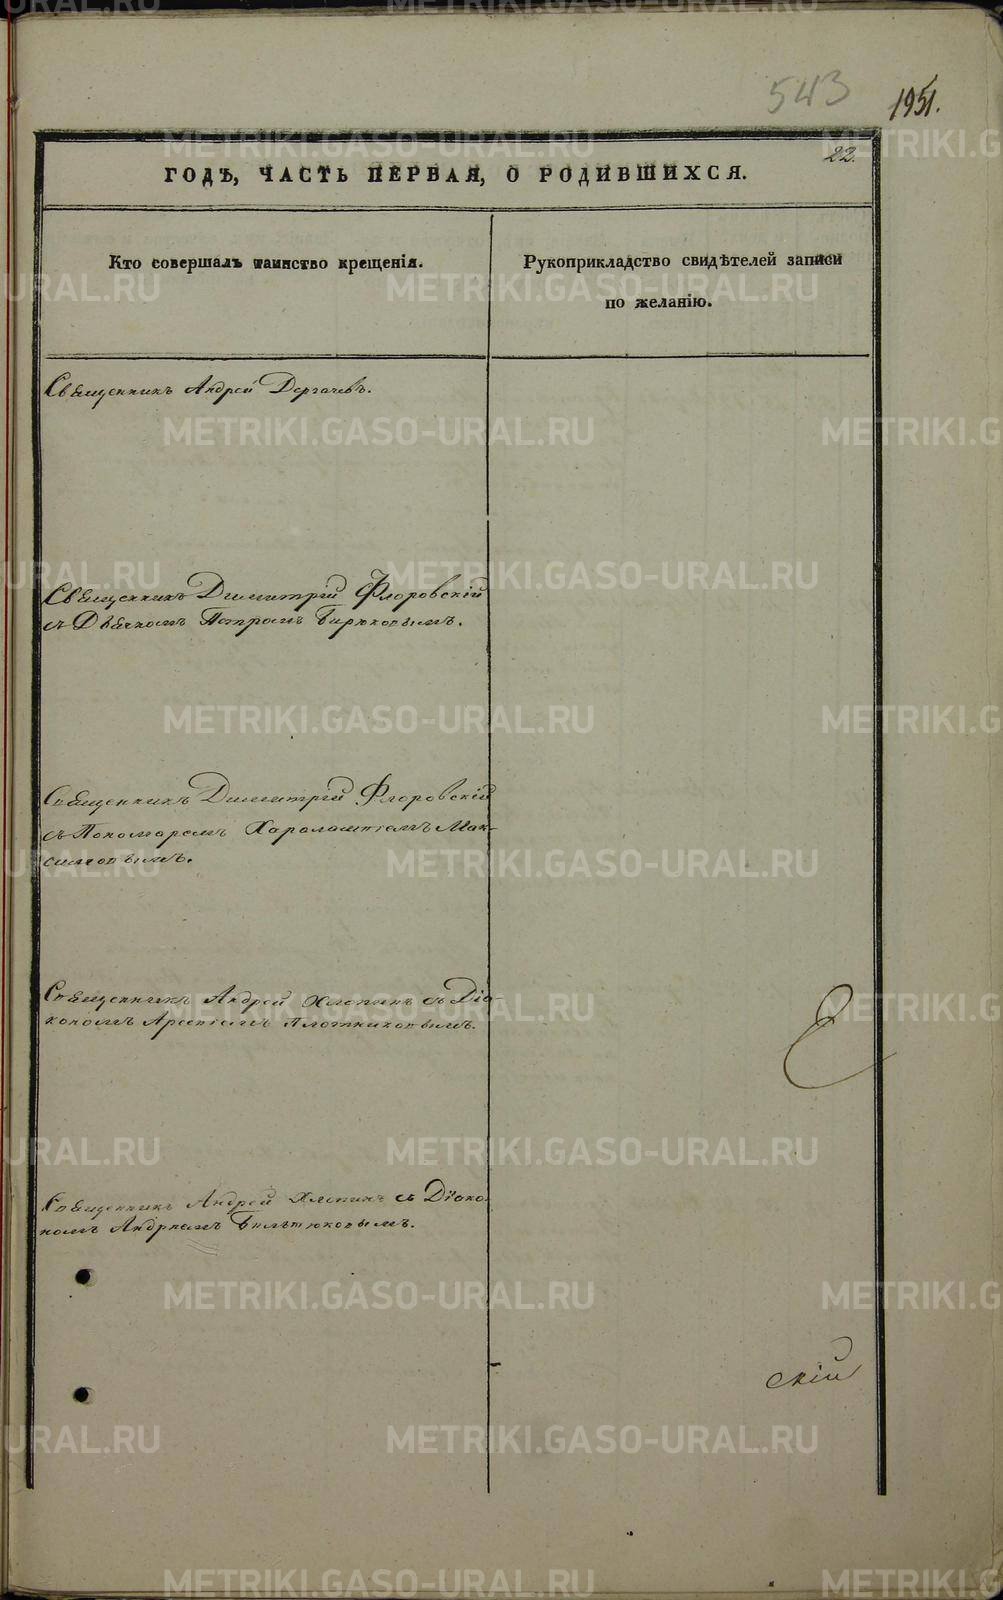 543
1951.
22.
ГОДЪ, ЧАСТЬ ПЕРВАЯ, О РОДИВШИХСЯ.
Кто совершалъ таинство крещенія.
Рукоприкладство свидѣтелей записи
по желанію.
Священникъ Андрей Дергачевъ.
Священникъ Димитрій Флоровскій
съ Дьячкомъ Петромъ Бирюковымъ.
Священникъ Димитрій Флоровскій
съ Пономаремъ Харалампіемъ Мак-
симовымъ.
Священникъ Андрей Хлопинъ съ Діа-
кономъ Арсеніемъ Плотниковымъ.
Священникъ Андрей Хлопинъ съ Діако-
номъ Андреемъ
скій
METRIKI.GASO-URAL.RU